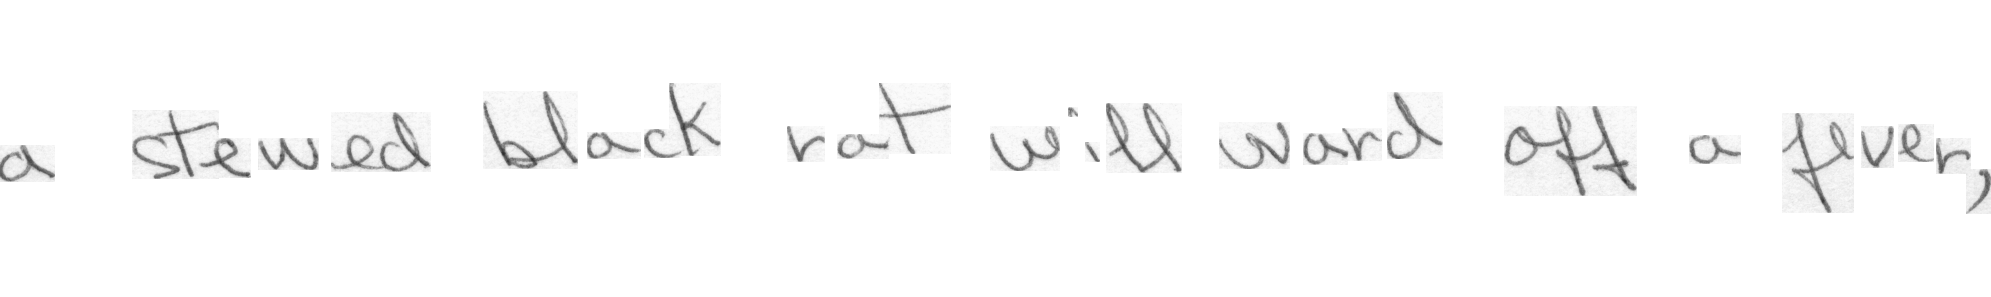 a stewed black rat will ward off a fever,